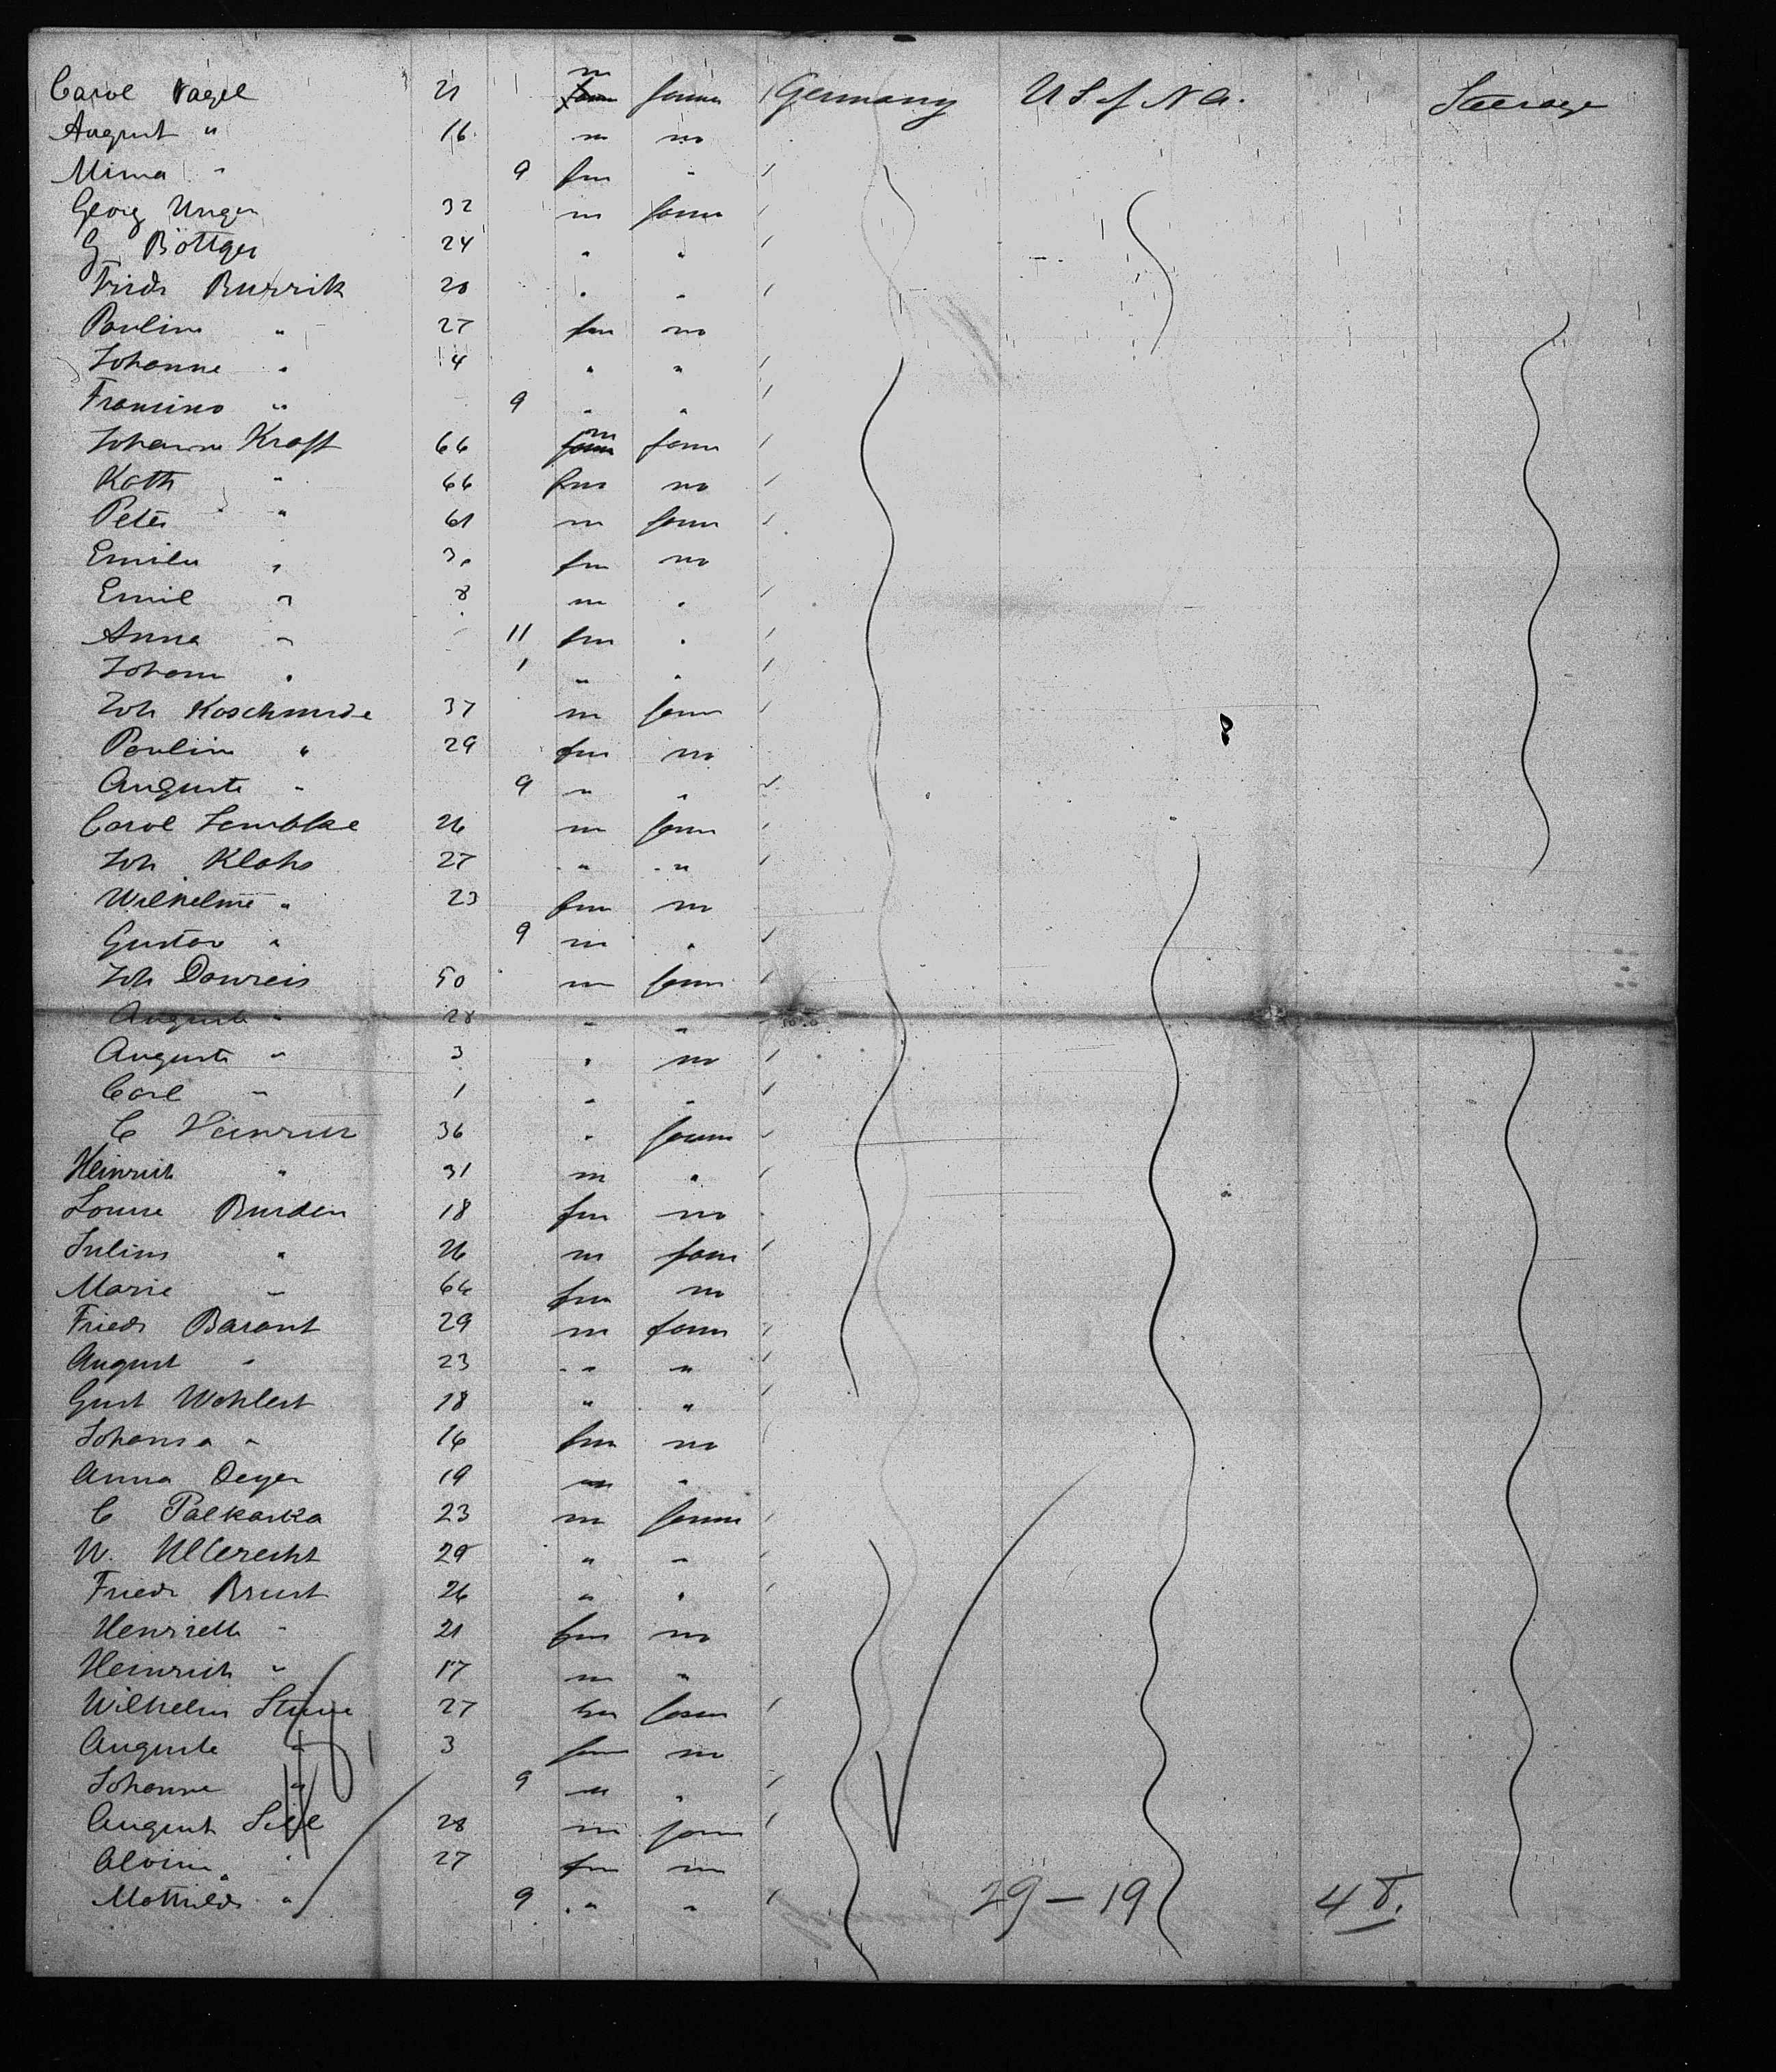 Carol Nagel 21 m farmer Germany U S of N A. Steerage
August " 16 m no
Minna " 9 fm "
Georg Unger 32 m farm
G Böttger 24 " "
Friedr Burrik 20 " "
Pauline " 27 fm no
Johanne " 4 " "
" 9 " "
Johann Kraft 66 m farm
Kath " 66 fm no
Peter " 61 m farm
Emilie " 30 fm no
Emil " 8 m "
Anna " 11 fm "
Johann " 1 " "
Joh Koschmide 37 m farm
Paulin " 29 fm no
Auguste " 9 " "
Carol Lembke 26 m farm
Joh Klahs 27 " "
Wilhelmine " 23 fm no
Gustav " 9 m "
Joh Donreis 50 m farm
August " 28 " "
Auguste " 3 " no
Carl " 1 " "
C Heinrich 36 " farm
Heinrich " 31 m "
Louise Burden 18 fm no
Julius " 26 m farm
Marie " 64 fm no
Friedr Barant 29 m farm
August " 23 " "
Gust Wohlert 18 " "
Johanna " 16 fm no
Anna Deyer 19 " "
C Palkaska 23 m farm
W. Ulbrecht 29 " "
Friedr Brust 26 " "
Henriette " 21 fm no
Heinrich " 17 m "
Wilhelm 27 farm
Auguste " 3 fm no
Johanne " 9 " "
August 28 m farm
Alvine " 27 fm no
Mathilde " 9 " "
29 – 19 48.